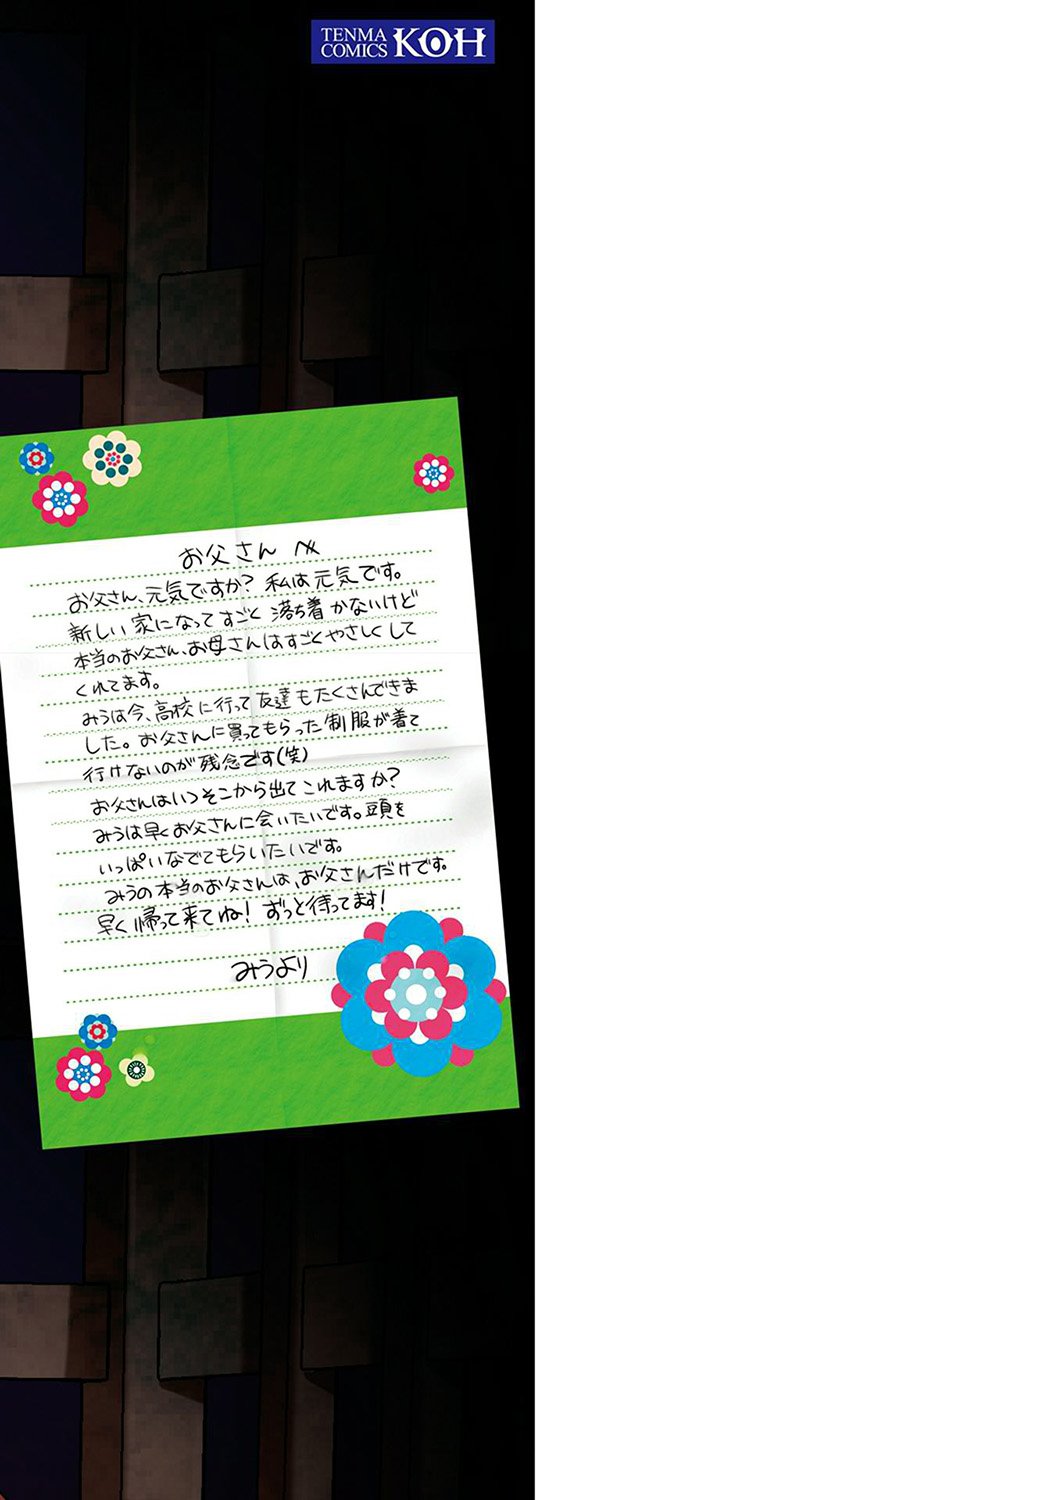 TENMA
COMICS KOH
お父さんへ
お父さん、元気ですか？ 私は元気です。
新しい家になってすごく落ち着かないけど
本当のお父さん、お母さんはすごくやさしくして
くれてます。
みうは今、高校に行って友達もたくさんできま
した。お父さんに買ってもらった制服が着て
行けないのが残念です(笑)
お父さんはいつそこから出てこれますか？
みうは早くお父さんに会いたいです。頭を
いっぱいなでてもらいたいです。
みうの本当のお父さんは、お父さんだけです。
早く帰って来てね！ずっと待ってます！
みうより